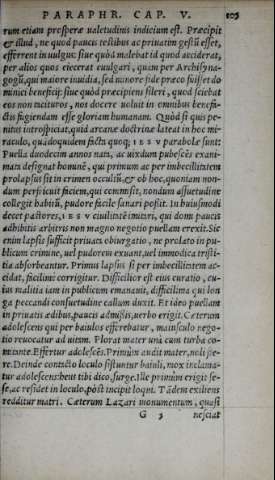 PARAPHR. CAP. V. 103
rum etiam prosperæ ualetudinis indicium est. Præcipit
& illud, ne quod paucis testibus ac priuatim gestũ esset,
efferrent in uulgus: siue quòd malebat id quod acciderat,
per alios quos eiecerat euulgari, quàm per Archisyna-
gogũ, qui maiore inuidia, sed minore fide præco fuisset do
minici beneficij: siue quòd præcipiens sileri, quod sciebat
eos non tacituros, nos docere uoluit in omnibus benefa-
ctis fugiendam esse gloriam humanam. Quòd si quis pe-
nitus introspiciat, quid arcanæ doctrinæ lateat in hoc mi-
raculo, quãdoquidem facta quoq; IESV parabolæ sunt:
Puella duodecim annos nata, ac uixdum pubescẽs exani-
mata designat hominẽ, qui primum ac per imbecillitatem
prolapsus sit in crimen occultũ, & ob hoc, quoniam non-
dum perfricuit faciem, qui commisit, nondum assuetudine
collegit habitũ, pudore facile sanari possit. In huiusmodi
decet pastores, IESV ciuilitatẽ imitari, qui domi paucis
adhibitis arbitris non magno negotio puellam erexit. Sic
enim lapsis sufficit priuata obiurgatio, ne prolato in pu-
blicum crimine, uel pudorem exuant, uel immodica tristi-
tia absorbeantur. Primus lapsus si per imbecillitatem ac-
cidat, facilem corrigitur. Difficilior est eius curatio, cu-
ius malitia iam in publicum emanauit, difficilima qui lon
ga peccandi consuetudine callum duxit. Et ideo puellam
in priuatis ædibus, paucis admissis, uerbo erigit. Cæterum
adolescens qui per baiulos efferebatur, maiusculo nego-
tio reuocatur ad uitam. Plorat mater unà cum turba co-
mitante. Effertur adolescẽs. Primùm audit mater, noli fle-
re. Deinde contacto loculo sistuntur baiuli, mox inclama-
tur adolescens: heus tibi dico, surge. Ille primùm erigit se-
se, ac residet in loculo, pòst incipit loqui. Tãdem exiliens
redditur matri. Cæterum Lazari monumentum, quasi
G 3 nesciat